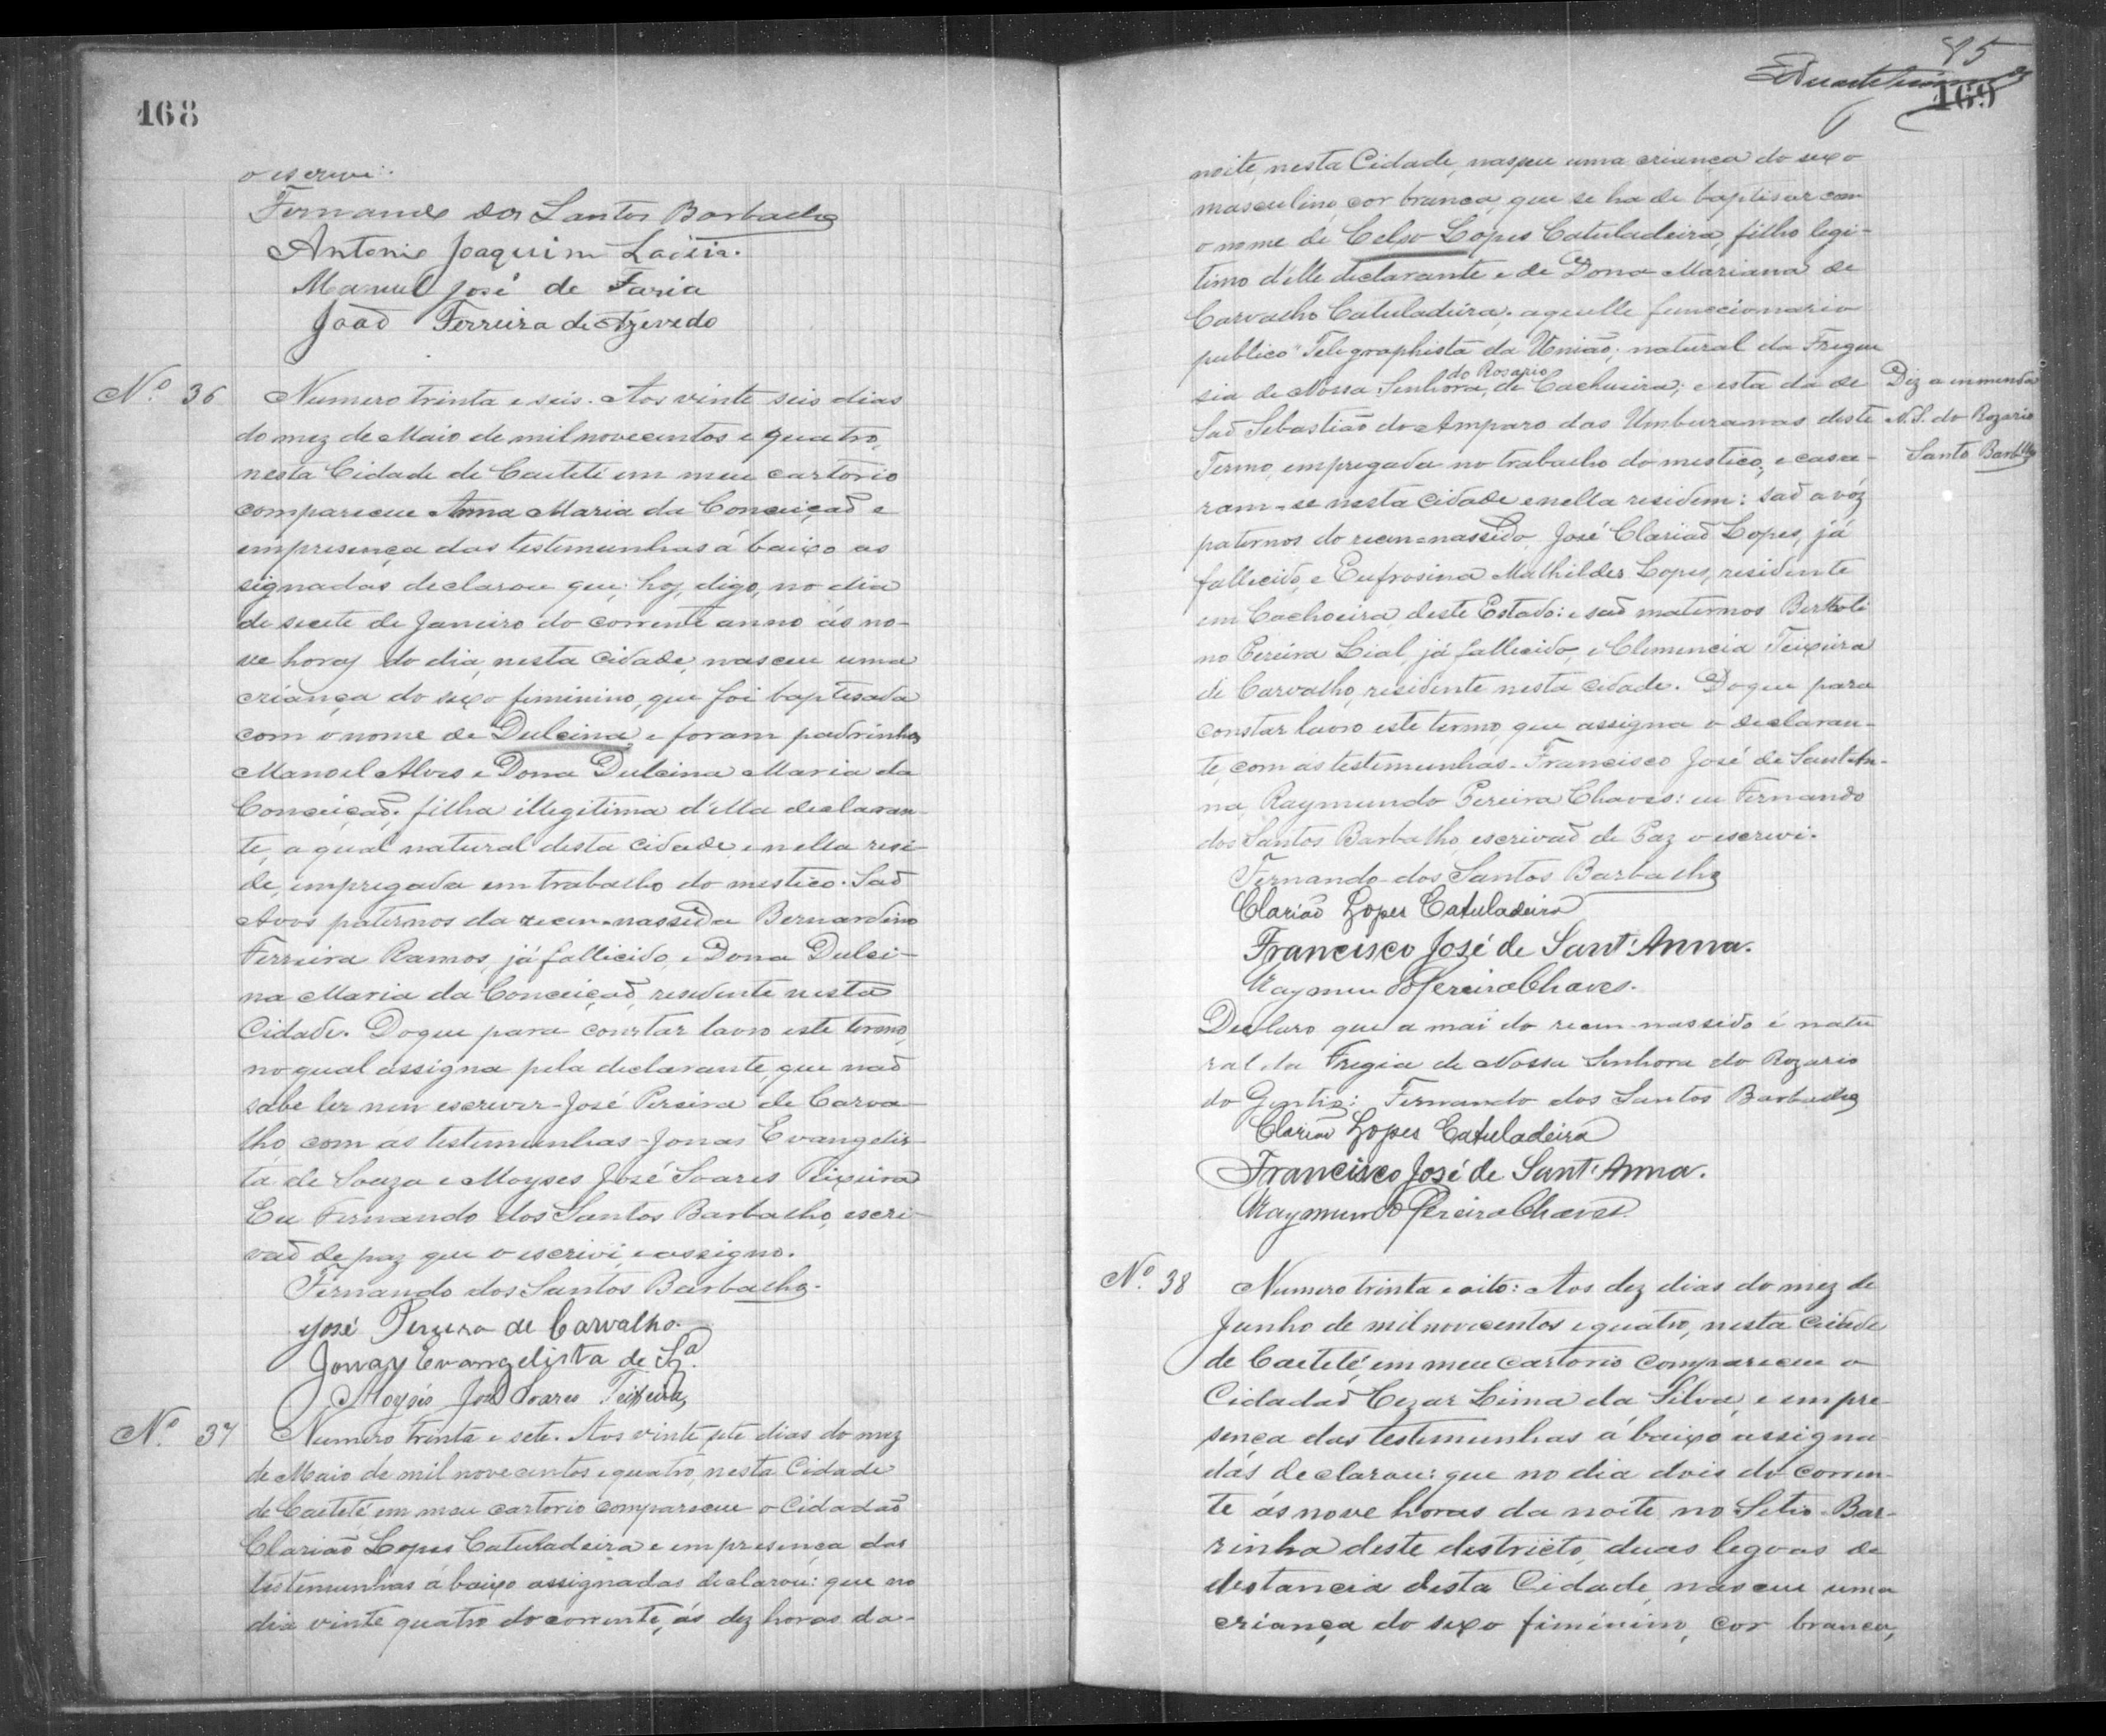 168
o escrevi.
Fernando dos Santos Barbalho
Antonio Joaquim
Manuel José de Faria
João Ferreira de Azevedo
Nº 36
Numero trinta e seis. Aos vinte seis dias
do mez de Maio de mil novecentos e quatro,
nesta Cidade de Caeteté em meu cartorio
compareceu Anna Maria da Conceição e
em presença das testemunhas á baixo as
signadas declarou que, hoj, digo, no dia
de secete de Janeiro do corrente anno ás no-
ve horas do dia, nesta Cidade, nasceu uma
criança do sexo fiminino, que foi baptesada
com o nome de Dulcina e foram padrinhos
Manoel Alves e Dona Dulcina Maria da
Conceição, filha illegitima d'ella declaran-
te, a qual natural desta cidade e nella resi-
de, empregada em trabalho domestico. São
Avos paternos da recem-nassida Bernardino
Ferreira Ramos, já fallicido, e Dona Dulci-
na Maria da Conceição, residente nesta
Cidade. Do que para constar lavro este termo,
no qual assigna pela declarante, que não
sabe ler nem escrever - José Pereira de Carva-
lho com as testemunhas - Jonas Evangelis-
ta de Souza e Moyses José Soares Teixeira
Eu Fernando dos Santos Barbalho, escri-
vão de paz que o escrivi, e assigno.
Fernando dos Santos Barbalho.
José Pereira de Carvalho.
Jonas Evangelista de Sza.
Moysés José Soares Teixeira
Nº 37
Numero trinta e sete. Aos vinte sete dias do mez
de Maio de mil novecentos e quatro, nesta Cidade
de Caeteté em meu cartorio compareceu o Cidadão
Clarião Lopes Catuladeira e em presença das
testemunhas á baixo assignadas declarou: que no
dia vinte quatro do corrente, ás dez horas da-
85
169
noite, nesta Cidade, nasceu uma criança do sexo
masculino, cor branca, que se ha de baptisar com
o nome de Celso Lopes Catuladeira, filho legi-
timo d'elle declarante e de Dona Mariana de
Carvalho Catuladeira; aquelle funccionario
publico Telegraphista da União; natural da Fregue
sia de Nossa Senhora, do Rosario de Cachueira; e esta da de
São Sebastião do Amparo das Umburanas deste
Termo, empregada no trabalho domestico, e casa-
ram-se nesta cidade e nella residem: são avóz
paternos do recem-nassido, José Clarião Lopes, já
fallecido, e Eufrosina Mathildes Lopes, residente
em Cachoeira deste Estado: e são maternos Bertholi
no Pereira Leal, já fallicido, e Clemencia Teixeira
de Carvalho, residente nesta cidade. Do que para
constar lavro este termo que assigna o declaran-
te, com as testemunhas - Francisco José de Sant'An-
na, Raymundo Pereira Chaves: eu Fernando
dos Santos Barbalho, escrivão de Paz o escrevi.
Diz a emmenda
N. S. do Rozario
Santos Barblho
Fernando dos Santos Barbalho
Clarião Lopes Catuladeira
Francisco José de Sant'Anna.
Raymundo Pereira Chaves.
Declaro que a mai do recem-nassido é natu
ral da Fregia de Nossa Senhora do Rozario
do Gentio: Fernando dos Santos Barbalho
Clarião Lopes Catuladeira
Francisco José de Sant'Anna.
Raymundo Pereira Chaves.
Nº 38
Numero trinta e oito: Aos dez dias do mez de
Junho de mil novecentos e quatro, nesta Cidade
de Caeteté em meu cartorio compareceu o
Cidadão Cezar Lima da Silva, e em pre-
sença das testemunhas á baixo assigna-
das declarou: que no dia dois do corren-
te ás nove horas da noite, no Setio-Bar-
rinha deste districto, duas legoas de
distancia desta Cidade, nasceu uma
criança do sexo fiminino, cor branca,